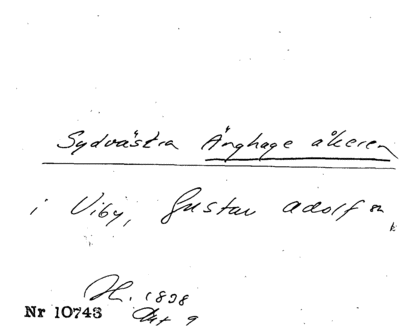 Sydvästra Änghage åkeren
i Viby, Gustav Adolf sn
H. 1838
Akt 9
Nr 10743